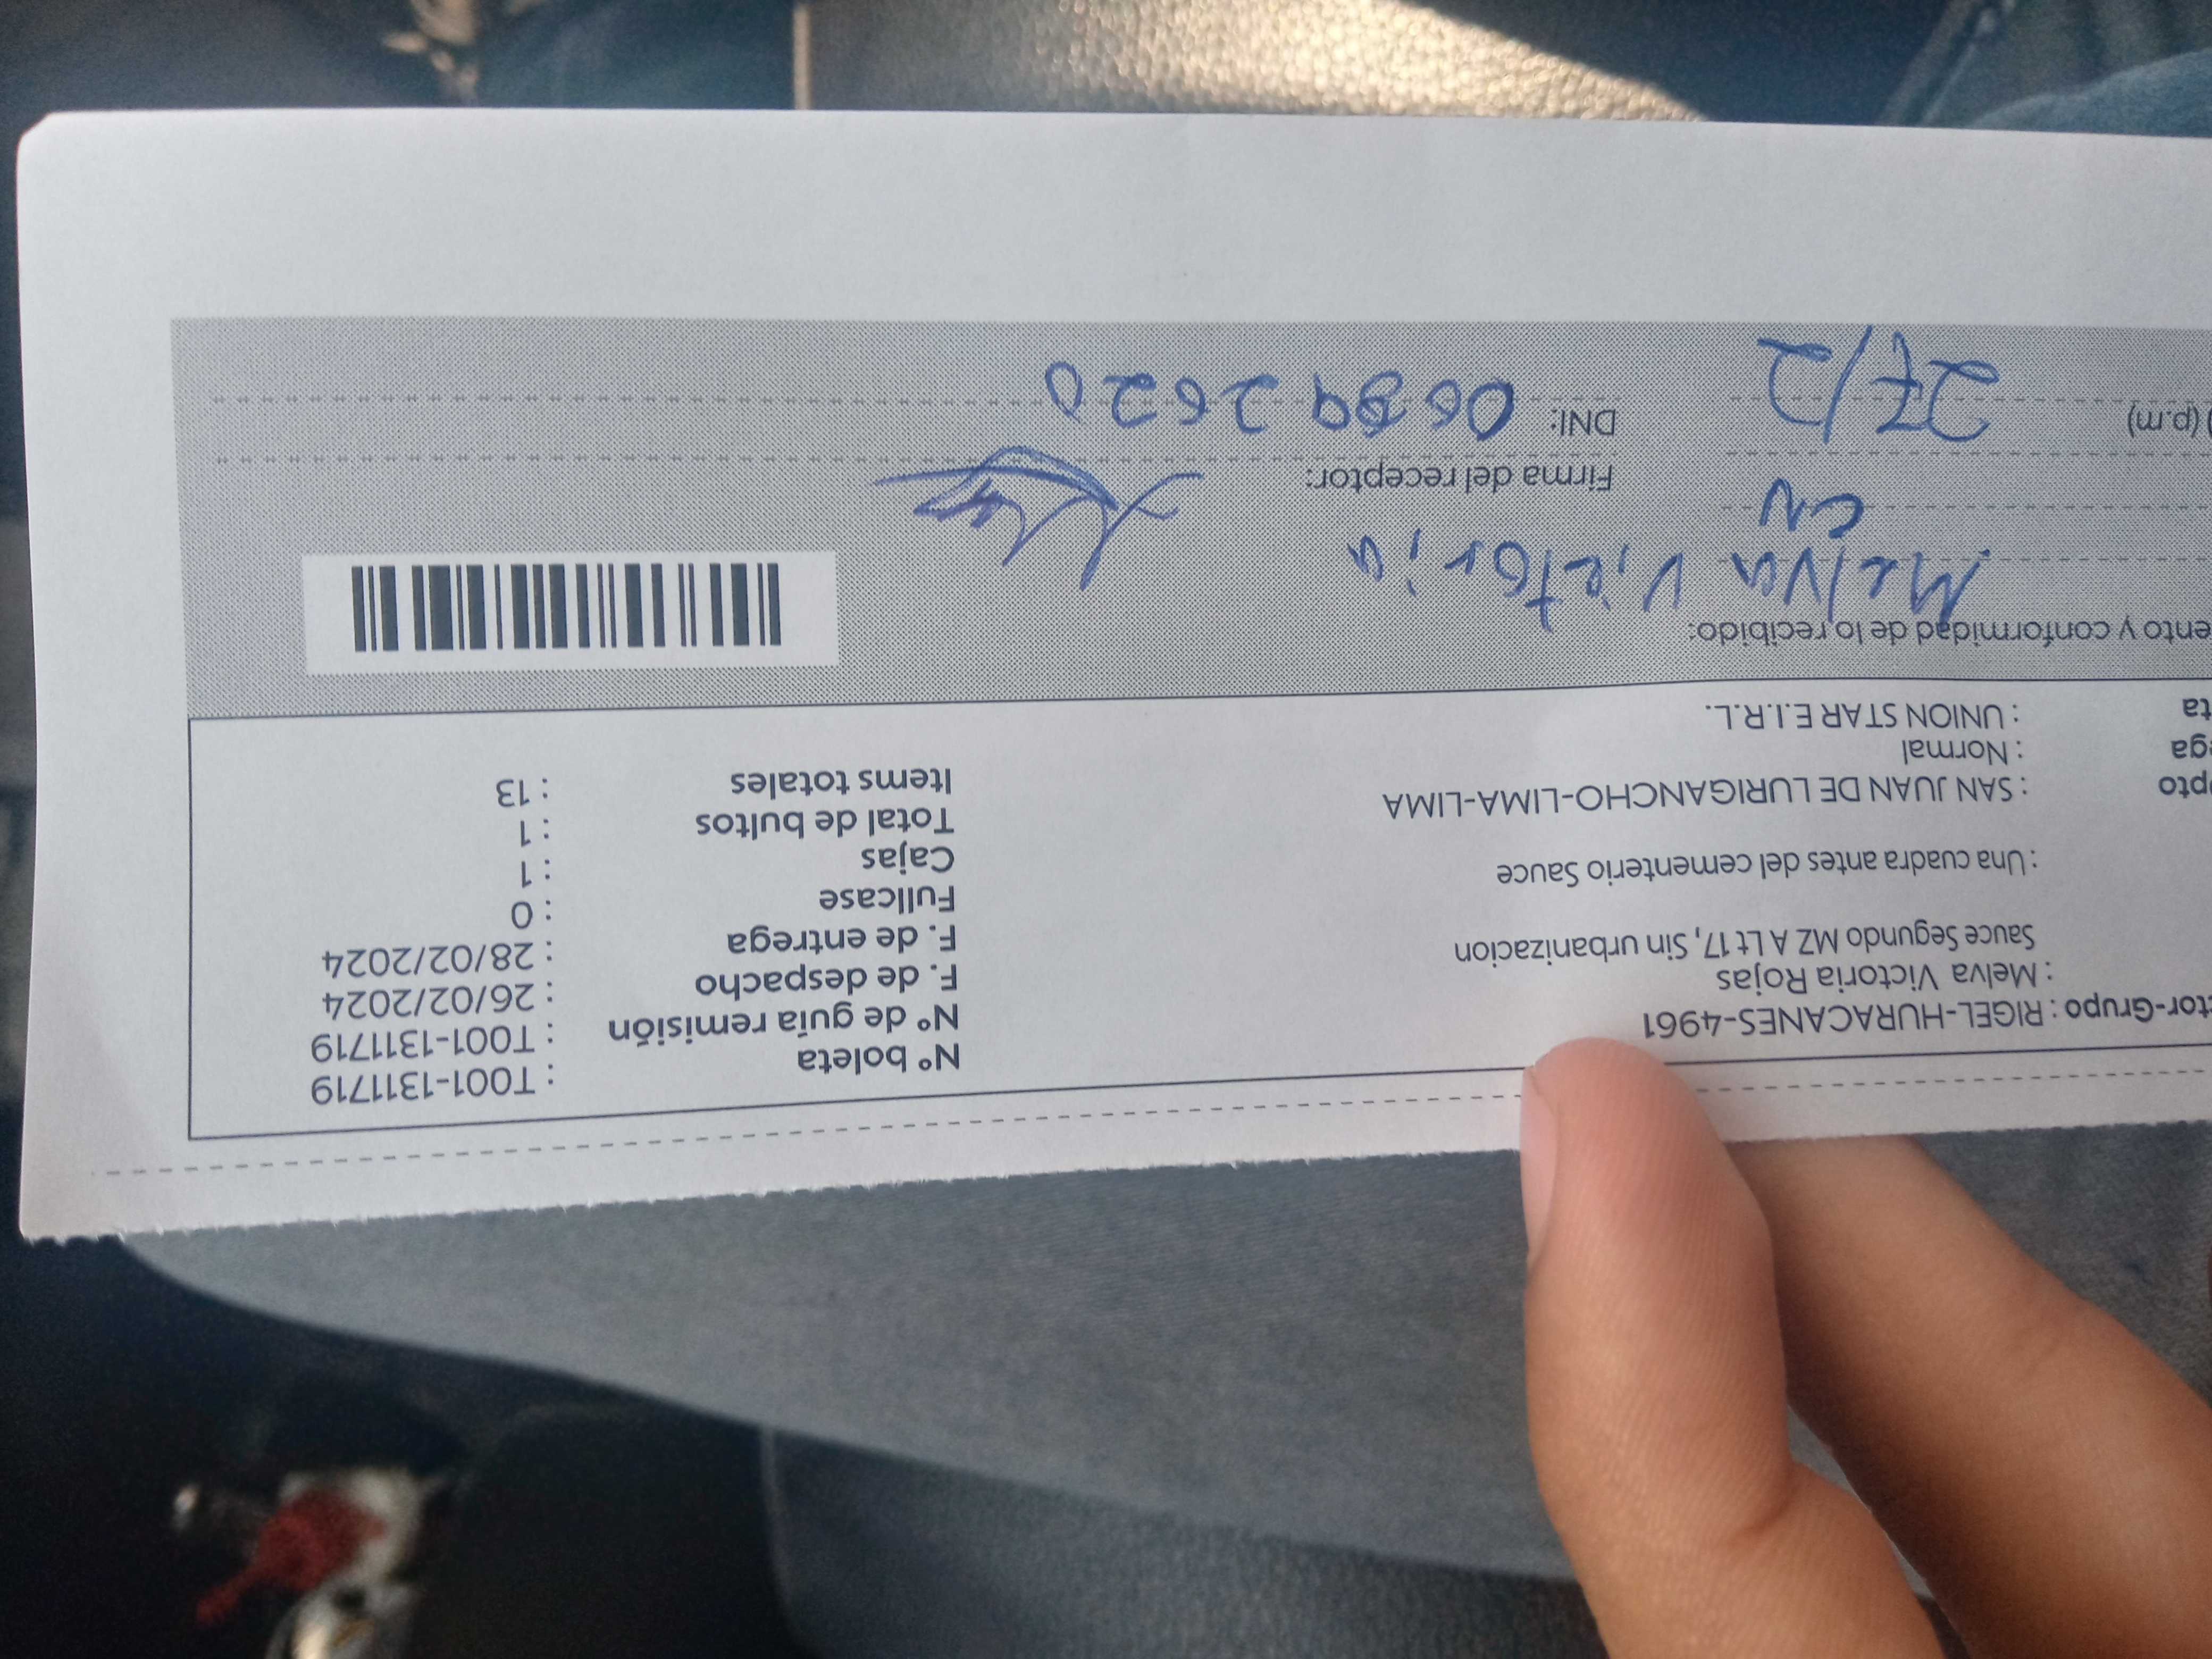 Nº boleta : T001-1311719
tor-Grupo : RIGEL-HURACANES-4961 Nº de guía remisión : T001-1311719
: Melva Victoria Rojas F. de despacho : 26/02/2024
Sauce Segundo MZ A Lt 17, Sin urbanizacion F. de entrega : 28/02/2024
Fullcase : 0
: Una cuadra antes del cementerio Sauce Cajas : 1
Total de bultos : 1
pto : SAN JUAN DE LURIGANCHO-LIMA-LIMA Items totales : 13
ega : Normal
ta : UNION STAR E.I.R.L.
ento y conformidad de lo recibido:
Melva Victoria
CN
Firma del receptor:
(p.m) 27/2 DNI: